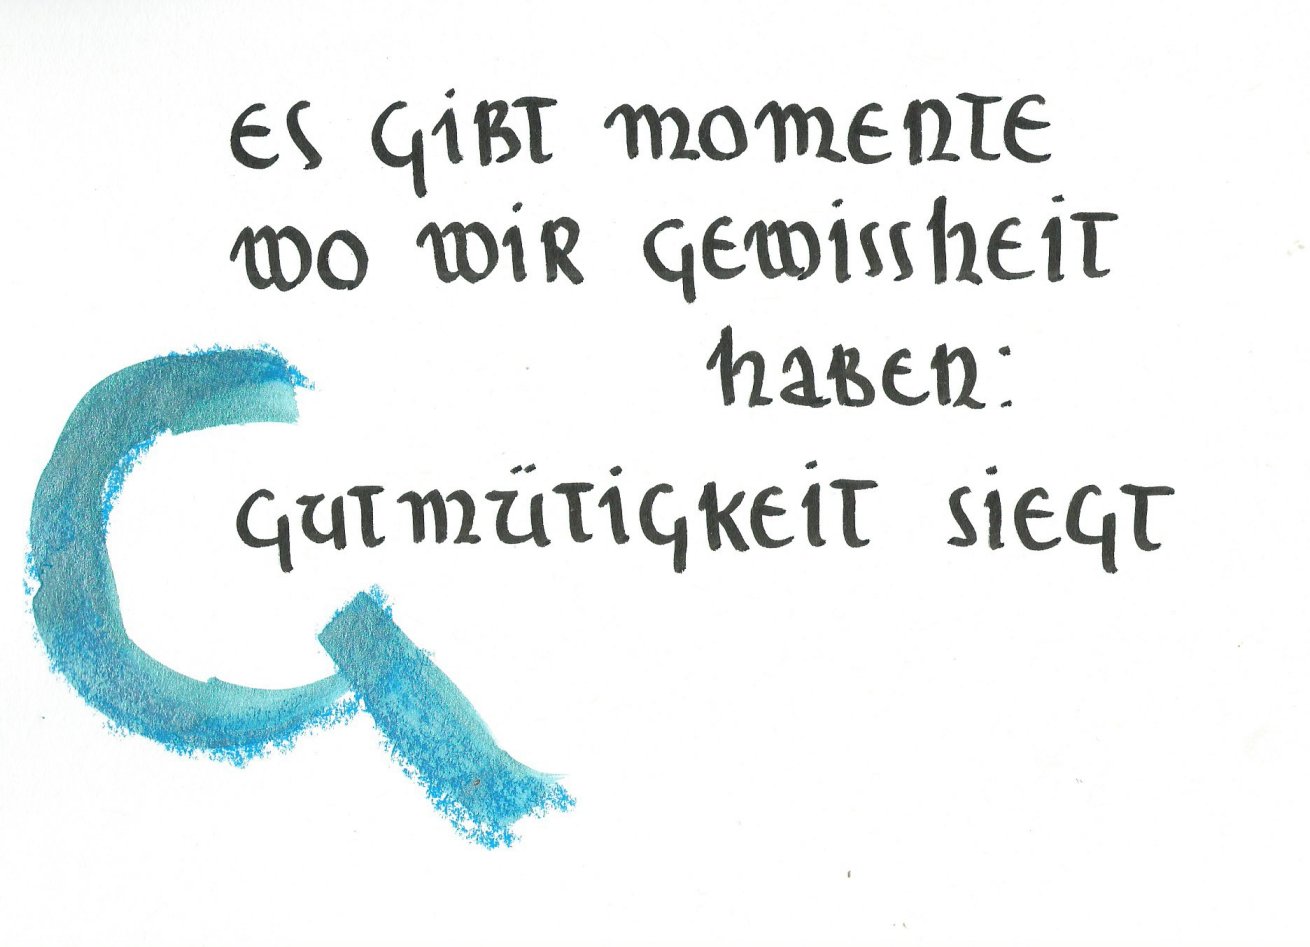 ES GIBT MOMENTE
WO WIR GEWISSHEIT
HABEN:
GUTMÜTIGKEIT SIEGT
G